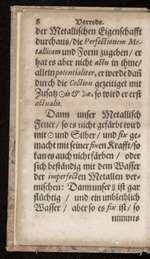 8 Vorrede.
der Metallischen Eigenschafft
durchaus/die Perfectionem Me-
tallicam und Form zugeben/er
hat es aber nicht actu in ihme/
allein potentialiter, er werde dañ
durch die Coction gezeitiget mit
Zusatz ☉ & so wird er erst
actualis.
Dann unser Metallisch
Feuer/so es nicht gefärbt wird
mit ☉ und Silber/und fix ge-
macht mit seiner fixen Krafft/so
kan es auch nicht färben/oder
sich beständig mit dem Wasser
der imperfecten Metallen ver-
mischen: Dann unser ist gar
flüchtig/und ein unfehlblich
Wasser/aber so es fix ist/so
nimmts